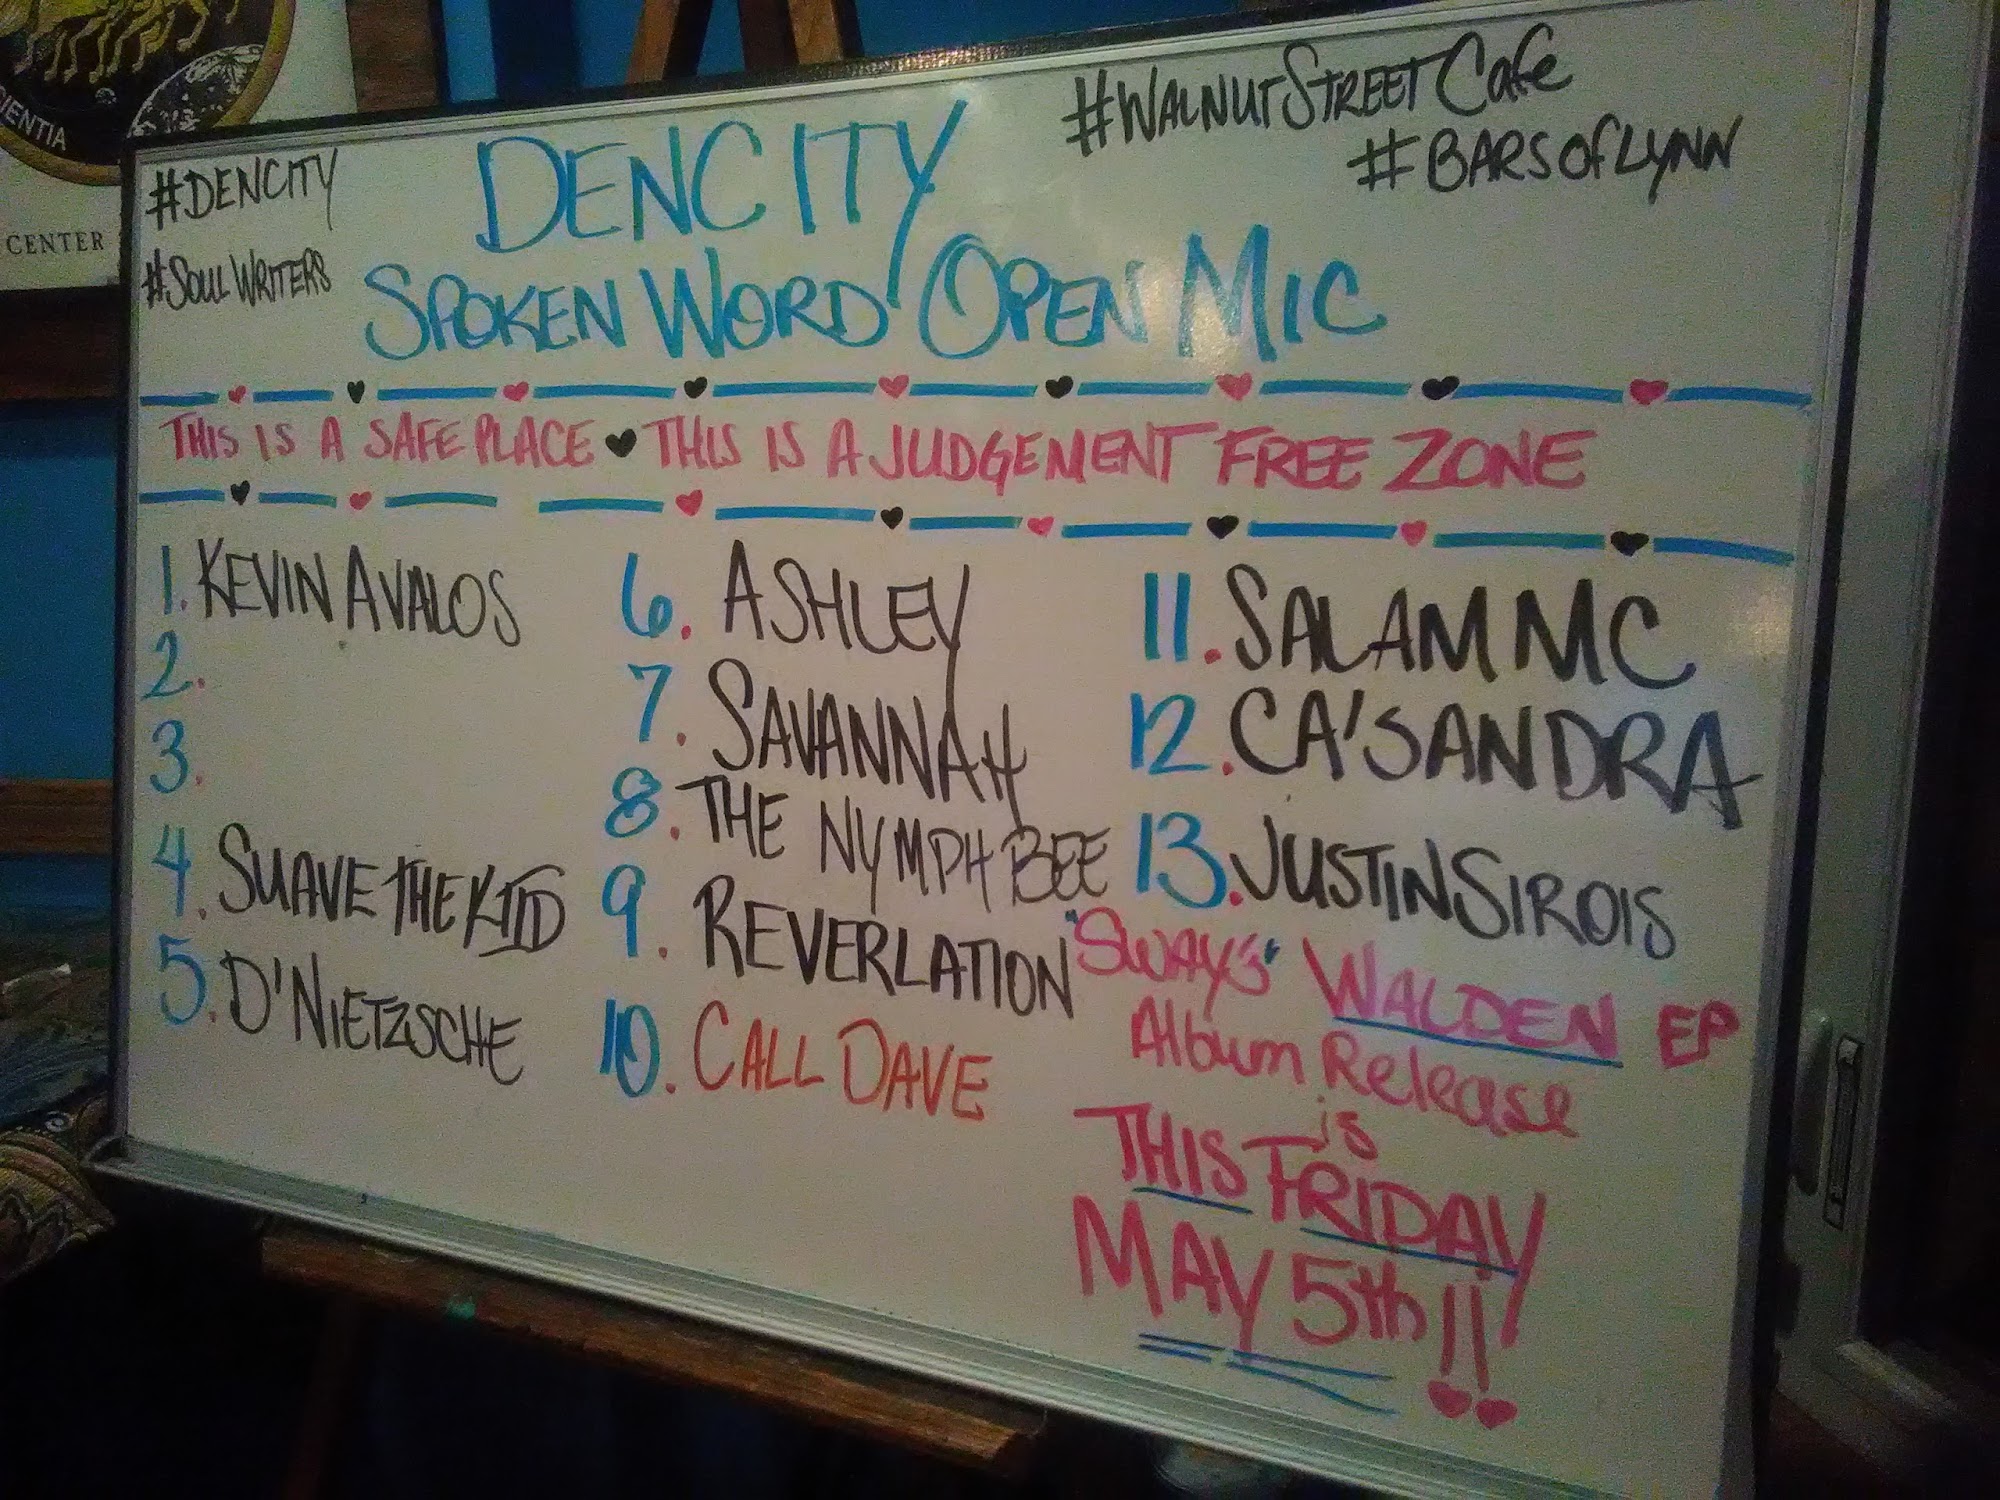 IENTIA
CENTER
#DENCITY
#SOUL WRITERS
DENCITY
SPOKEN WORD OPEN MIC
#WALNUTSTREETCafe
#BARSOfLYNN
THIS IS A SAFE PLACE ♥ THIS IS A JUDGEMENT FREE ZONE
1. KEVIN AVALOS
2.
3.
4. SUAVE THE KIID
5. D'NIETZSCHE
6. ASHLEY
7. SAVANNAH
8. THE NYMPH BEE
9. REVERLATION
10. CALL DAVE
11. SALAM MC
12. CA'SANDRA
13. JUSTIN SIROIS
"SWAY'S" WALDEN EP
Album Release
is
THIS FRIDAY
MAY 5th!!